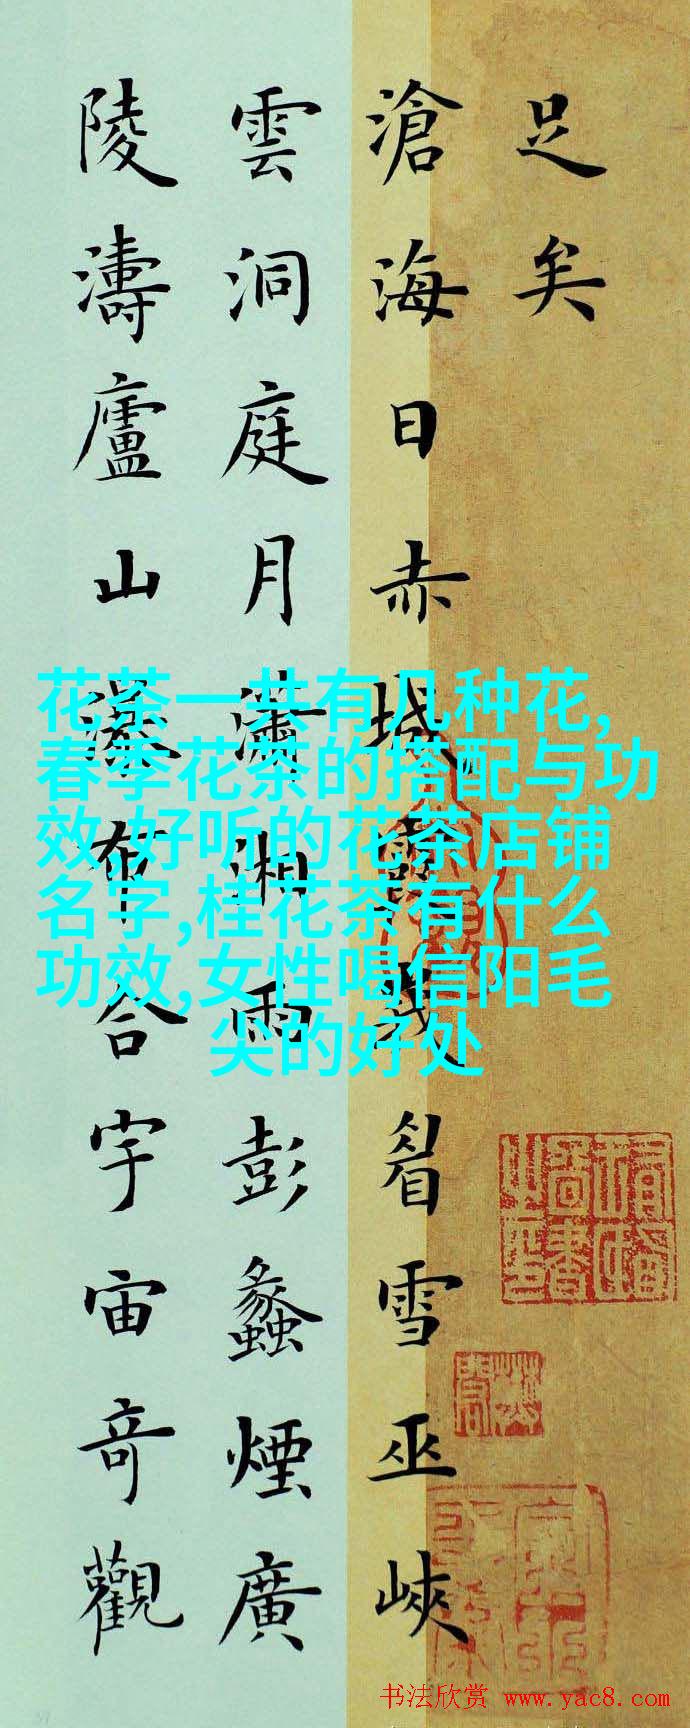 足矣
滄海日赤城霞峩眉雪巫峽
雲洞庭月瀟湘雨彭蠡煙廣
陵濤廬山瀑布合宇宙奇觀
花茶一共有几种花,
春季花茶的搭配与功
效,好听的花茶店铺
名字,桂花茶有什么
功效,女性喝信阳毛
尖的好处
书法欣赏 www.yac8.com